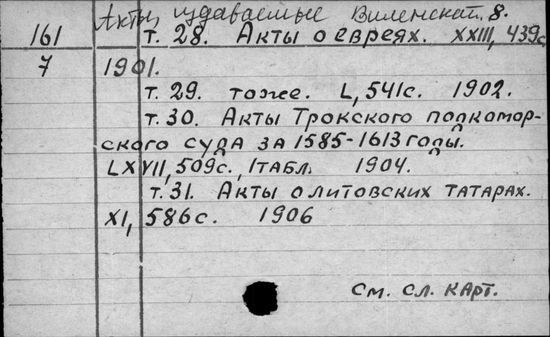 Акты издаваемые Виленской. 8.
161 т. 28. Акты о евреях. XXIII, 439с
7 1901.
т. 29. тоже. L, 541с. 1902.
т. 30. Акты Трокского подкомор-
ского суда за 1585-1613 годы.
LXVII, 509с., 1табл. 1904.
т. 31. Акты о литовских татарах.
XI, 586с. 1906
См. сл. карт.